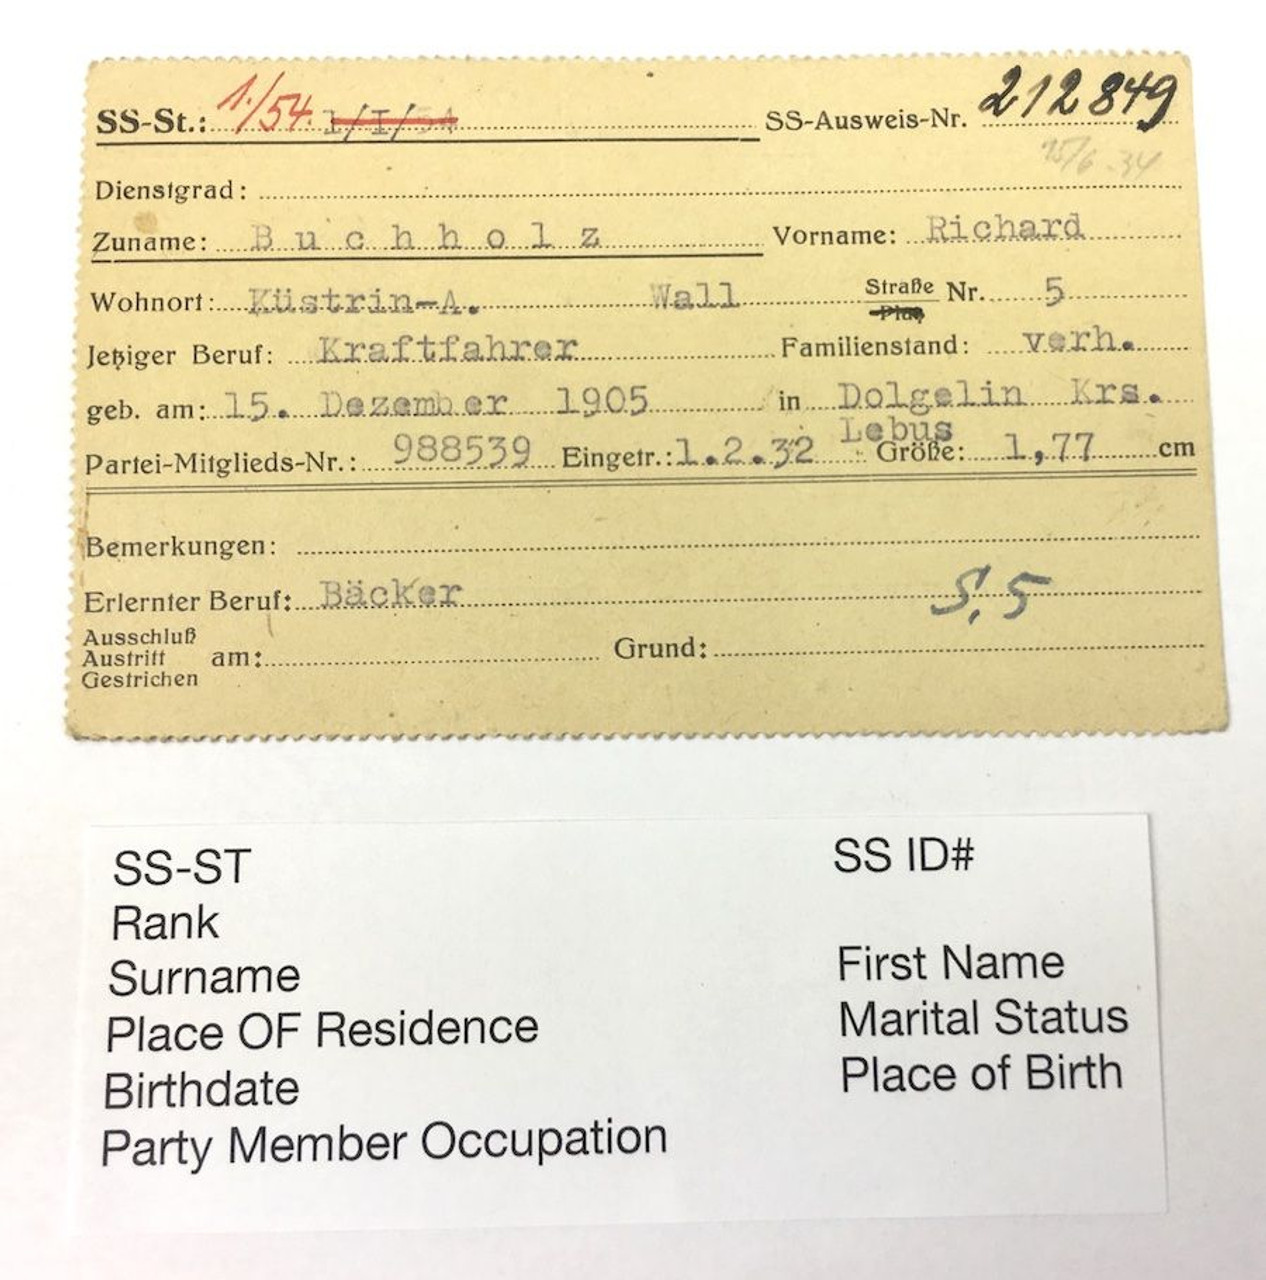 SS-St.: 1./54. 1/I/54 SS-Ausweis-Nr. 212849
15/6.34
Dienstgrad:
Zuname: Buchholz Vorname: Richard
Wohnort: Küstrin-A. Wall Straße Platz Nr. 5
Jetziger Beruf: Kraftfahrer Familienstand: verh.
geb. am: 15. Dezember 1905 in Dolgelin Krs.
Lebus
Partei-Mitglieds-Nr.: 988539 Eingetr.: 1.2.32 Größe: 1,77 cm
Bemerkungen:
Erlernter Beruf: Bäcker S.5
Ausschluß
Austritt am: Grund:
Gestrichen
SS-ST SS ID#
Rank
Surname First Name
Place OF Residence Marital Status
Birthdate Place of Birth
Party Member Occupation